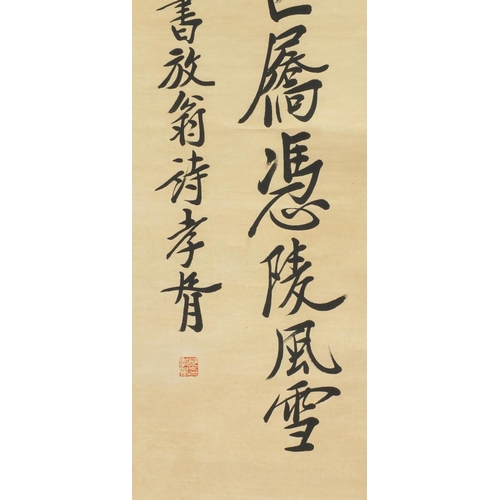 屩憑陵風雪
書放翁詩孝胥